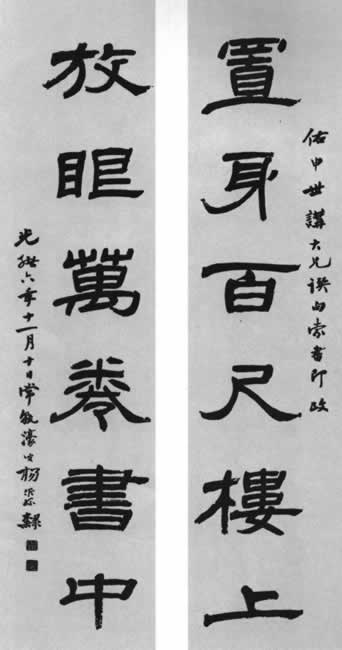 佑申世講大兄譔句索書即政
置身百尺樓上
放眼萬卷書中
光緒六年十一月十日常熟濠叟楊沂孫隸